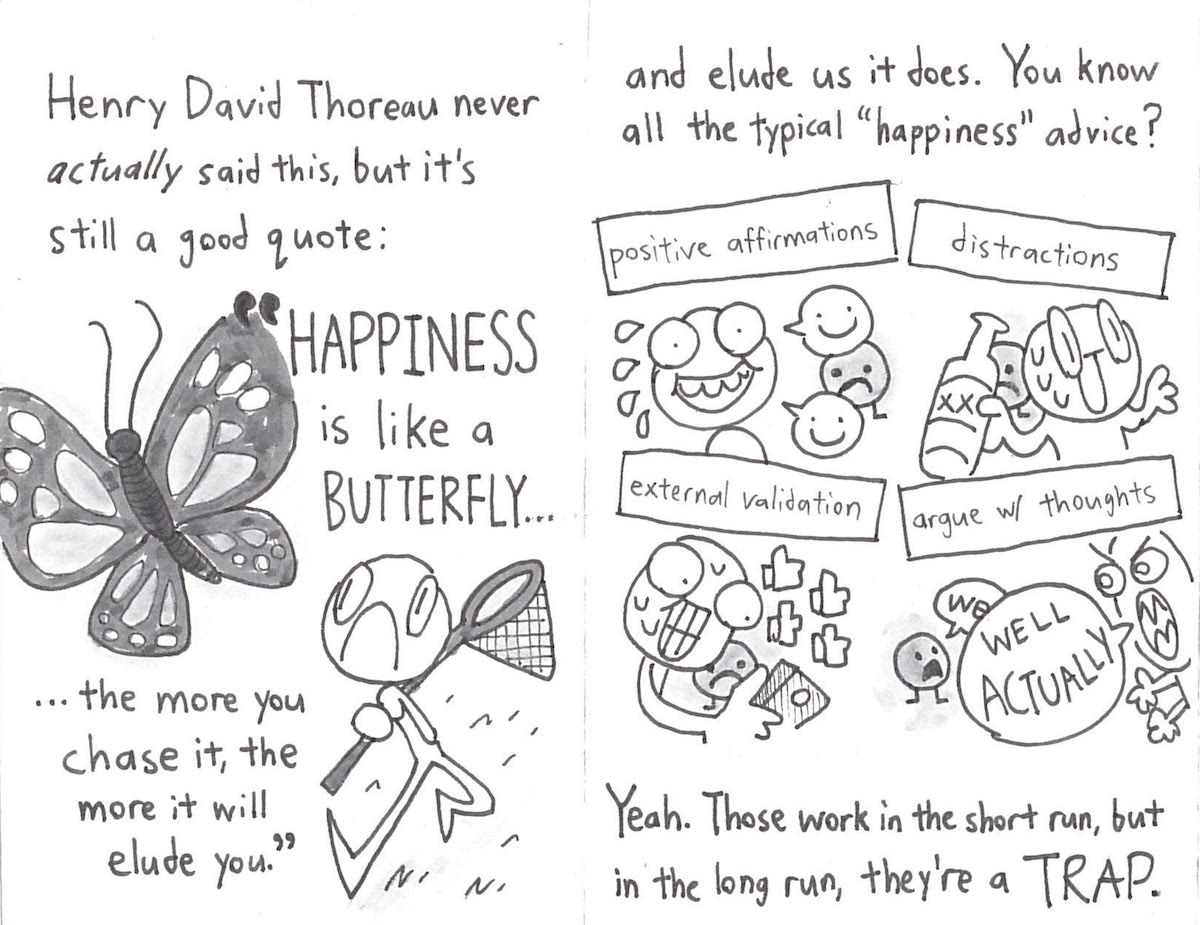 Henry David Thoreau never
actually said this, but it's
still a good quote:
“HAPPINESS
is like a
BUTTERFLY...
...the more you
chase it, the
more it will
elude you.”
and elude us it does. You know
all the typical “happiness” advice?
positive affirmations
distractions
XX
external validation
argue w/ thoughts
WE
WELL
ACTUALLY
Yeah. Those work in the short run, but
in the long run, they're a TRAP.